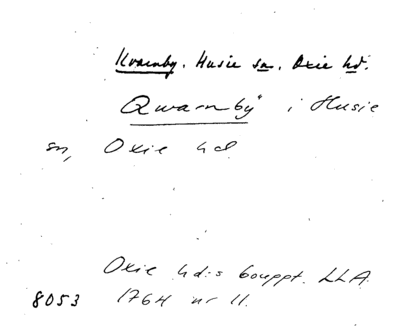 Kvarnby. Husie sn. Oxie hd.
Qwarnby i Husie
sn, Oxie hd
Oxie hd:s bouppt. LLA.
8053 1764 nr 11.